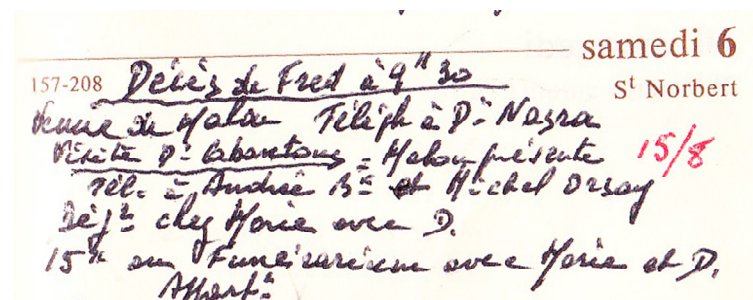 samedi 6
157-208 Décès de Fred à 9h30
St Norbert
Venue de Malou Téléph à Dr Nazra
Visite Dr Labantons = Malou présente 15/8
Tél. à Andrée Bx et Michel Orsay
Déjr chez Marie avec D.
15h au Funérarium avec Marie et D.